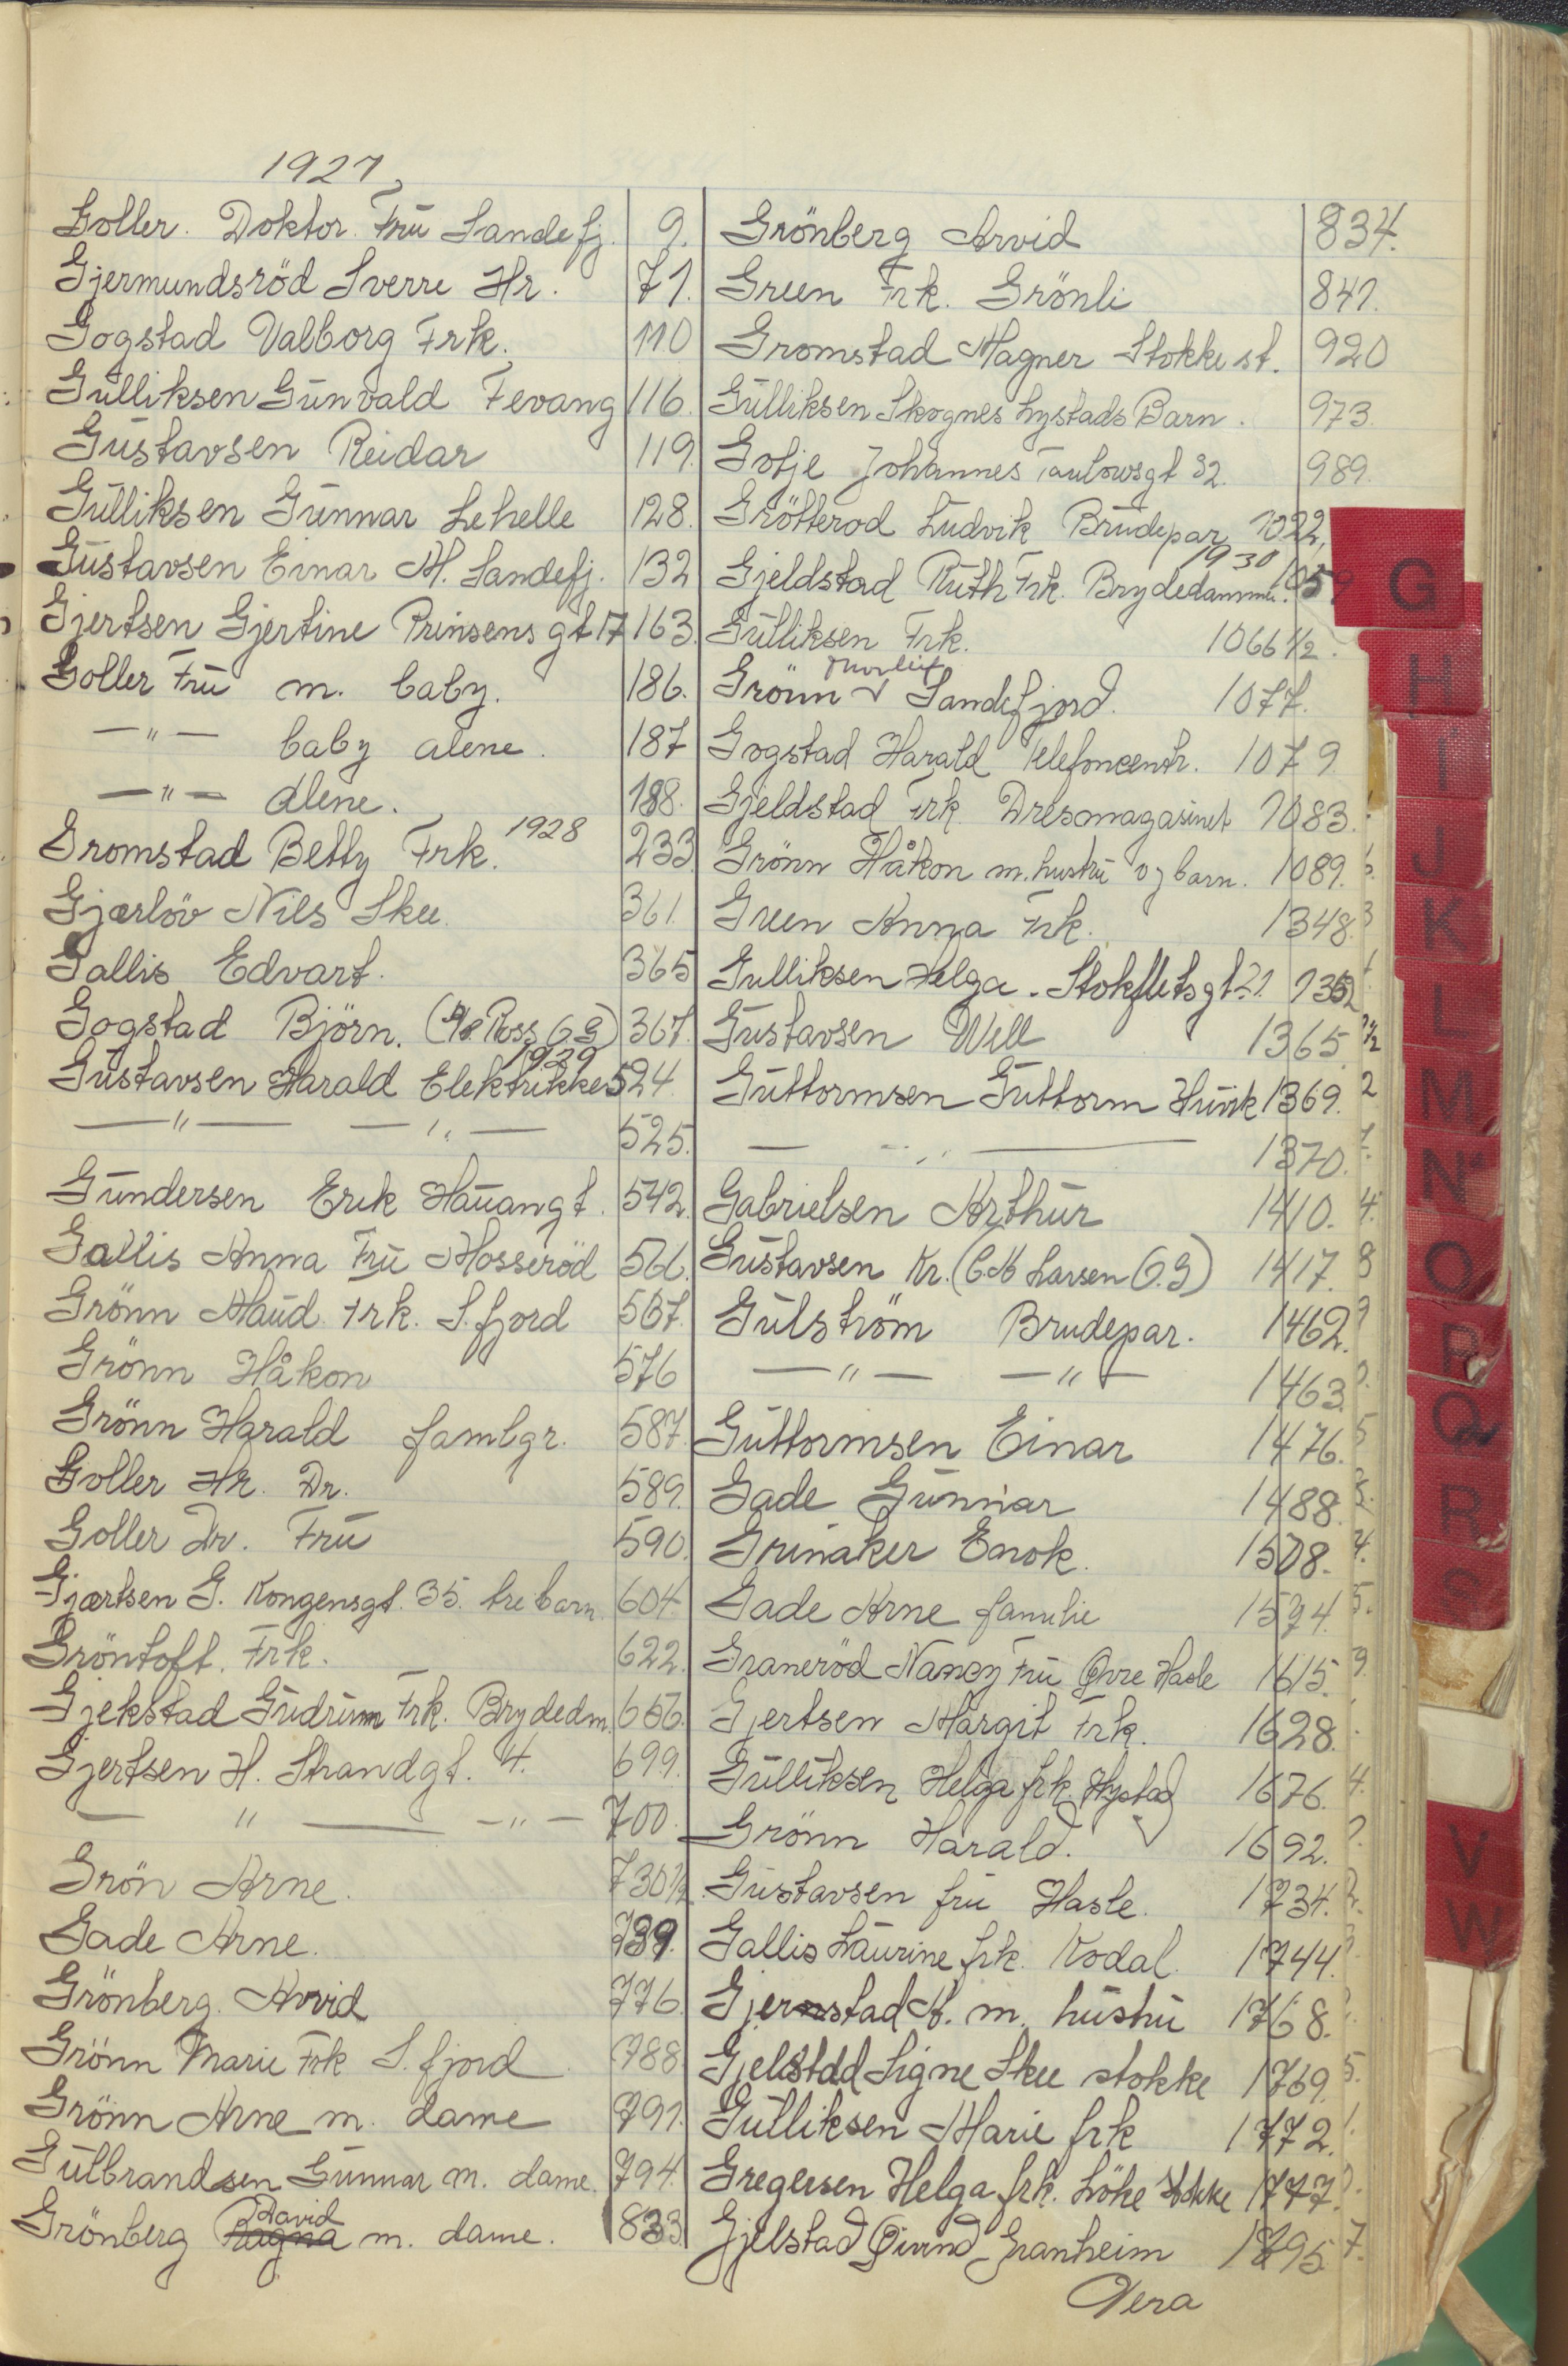 1927
Goller. Doktor. Frū Sandefj. 9.
Gjermundsröd Sverre Hr. 71.
Gogstad Valborg Frk. 110
Gūlliksen Gūnvald Fevang 116.
Gūstavsen Reidar 119.
Gūlliksen Gūnnar Lehelle 128.
Gūstavsen Einar M. Sandefj. 132
Gjertsen Gjertine Prinsens gt 17 163.
Goller Frū m. baby. 186.
—"— baby alene. 187
—"— alene. 188.
1928
Gromstad Betty Frk. 233
Gjærlöv Nils Skee. 361.
Gallis Edvart. 365
Gogstad Björn. (S/S Ross G.S) 367.
1929
Gūstavsen Harald Elektrikker 524.
—"— —"— 525.
Gūndersen Erik Haūangt. 542.
Gallis Anna Frū Mosseröd 566.
Grönn Maūd. Frk. S. fjord 567.
Grönn Håkon 576
Grönn Harald famlgr. 587.
Goller Hr. Dr. 589.
Goller Dr. Frū 590.
Gjærtsen G. Kongensgt. 35. tre barn. 604.
Gröntoft. Frk. 622.
Gjekstad Gūdrūn Frk. Brydedm. 656.
Gjertsen H. Strandgt. 4. 699.
— " — —"— 700.
Grön Arne. 730 1/2
Gade Arne. 739.
Grönberg. Arvid 776.
Grönn Marie Frk S. fjord 788.
Grönn Arne m. dame 791.
Gūlbrandsen Gūnnar m. dame. 794.
David
Grönberg Ragna m. dame. 833.
Grönberg Arvid 834.
Green Frk. Grönli 841.
Gromstad Magner Stokke st. 920
Gūlliksen Skognes Lystads Barn. 973.
Gotje Johannes Taulowsgt 32. 989.
Grötterod Lūdvik Brūdepar 1022.
1930
Gjeldstad Rūth Frk. Brydedammen. 105
Gūlliksen Frk. 1066 1/2.
Grönn Sandefjord. 1077.
Gogstad Harald Telefoncentr. 1079.
Gjeldstad Frk. Dresmagasinet 1083.
Grönn Håkon m. hustrū og barn. 1089.
Green Anna Frk. 1348.
Gulliksen Helga. Stokfletsgt. 21. 1352
Gūstavsen Will 1365
Gūttormsen Gūttorm Hūnk 1369.
— " — 1370.
Gabrielsen Arthūr 1410.
Gūstavsen Kr. (C.A Larsen G.S) 1417.
Gūlström Brudepar. 1462.
—"— —"— 1463.
Gūttormsen Einar 1476.
Gade Gūnnar 1488.
Grinaker Enok. 1508.
Gade Arne familie 1574.
Graneröd Nancy Frū Øvre Hasle 1615.
Gjertsen Margit Frk. 1628.
Gūlliksen Helga frk. Hystad 1676.
Grönn Harald. 1692.
Gūstavsen frū Hasle. 1734.
Gallis Laūrine frk. Kodal. 1744.
Gjerstad A. m. hūstrū 1768.
Gjelstad Signe Skee stokke 1769.
Gūlliksen Marie frk 1772.
Gregersen Helga frk. Löke Stokke 1777.
Gjelstad Øivind Granheim 1795.
Vera
G
H
I
J
K
L
M
N
O
P
Q
R
S
V
W